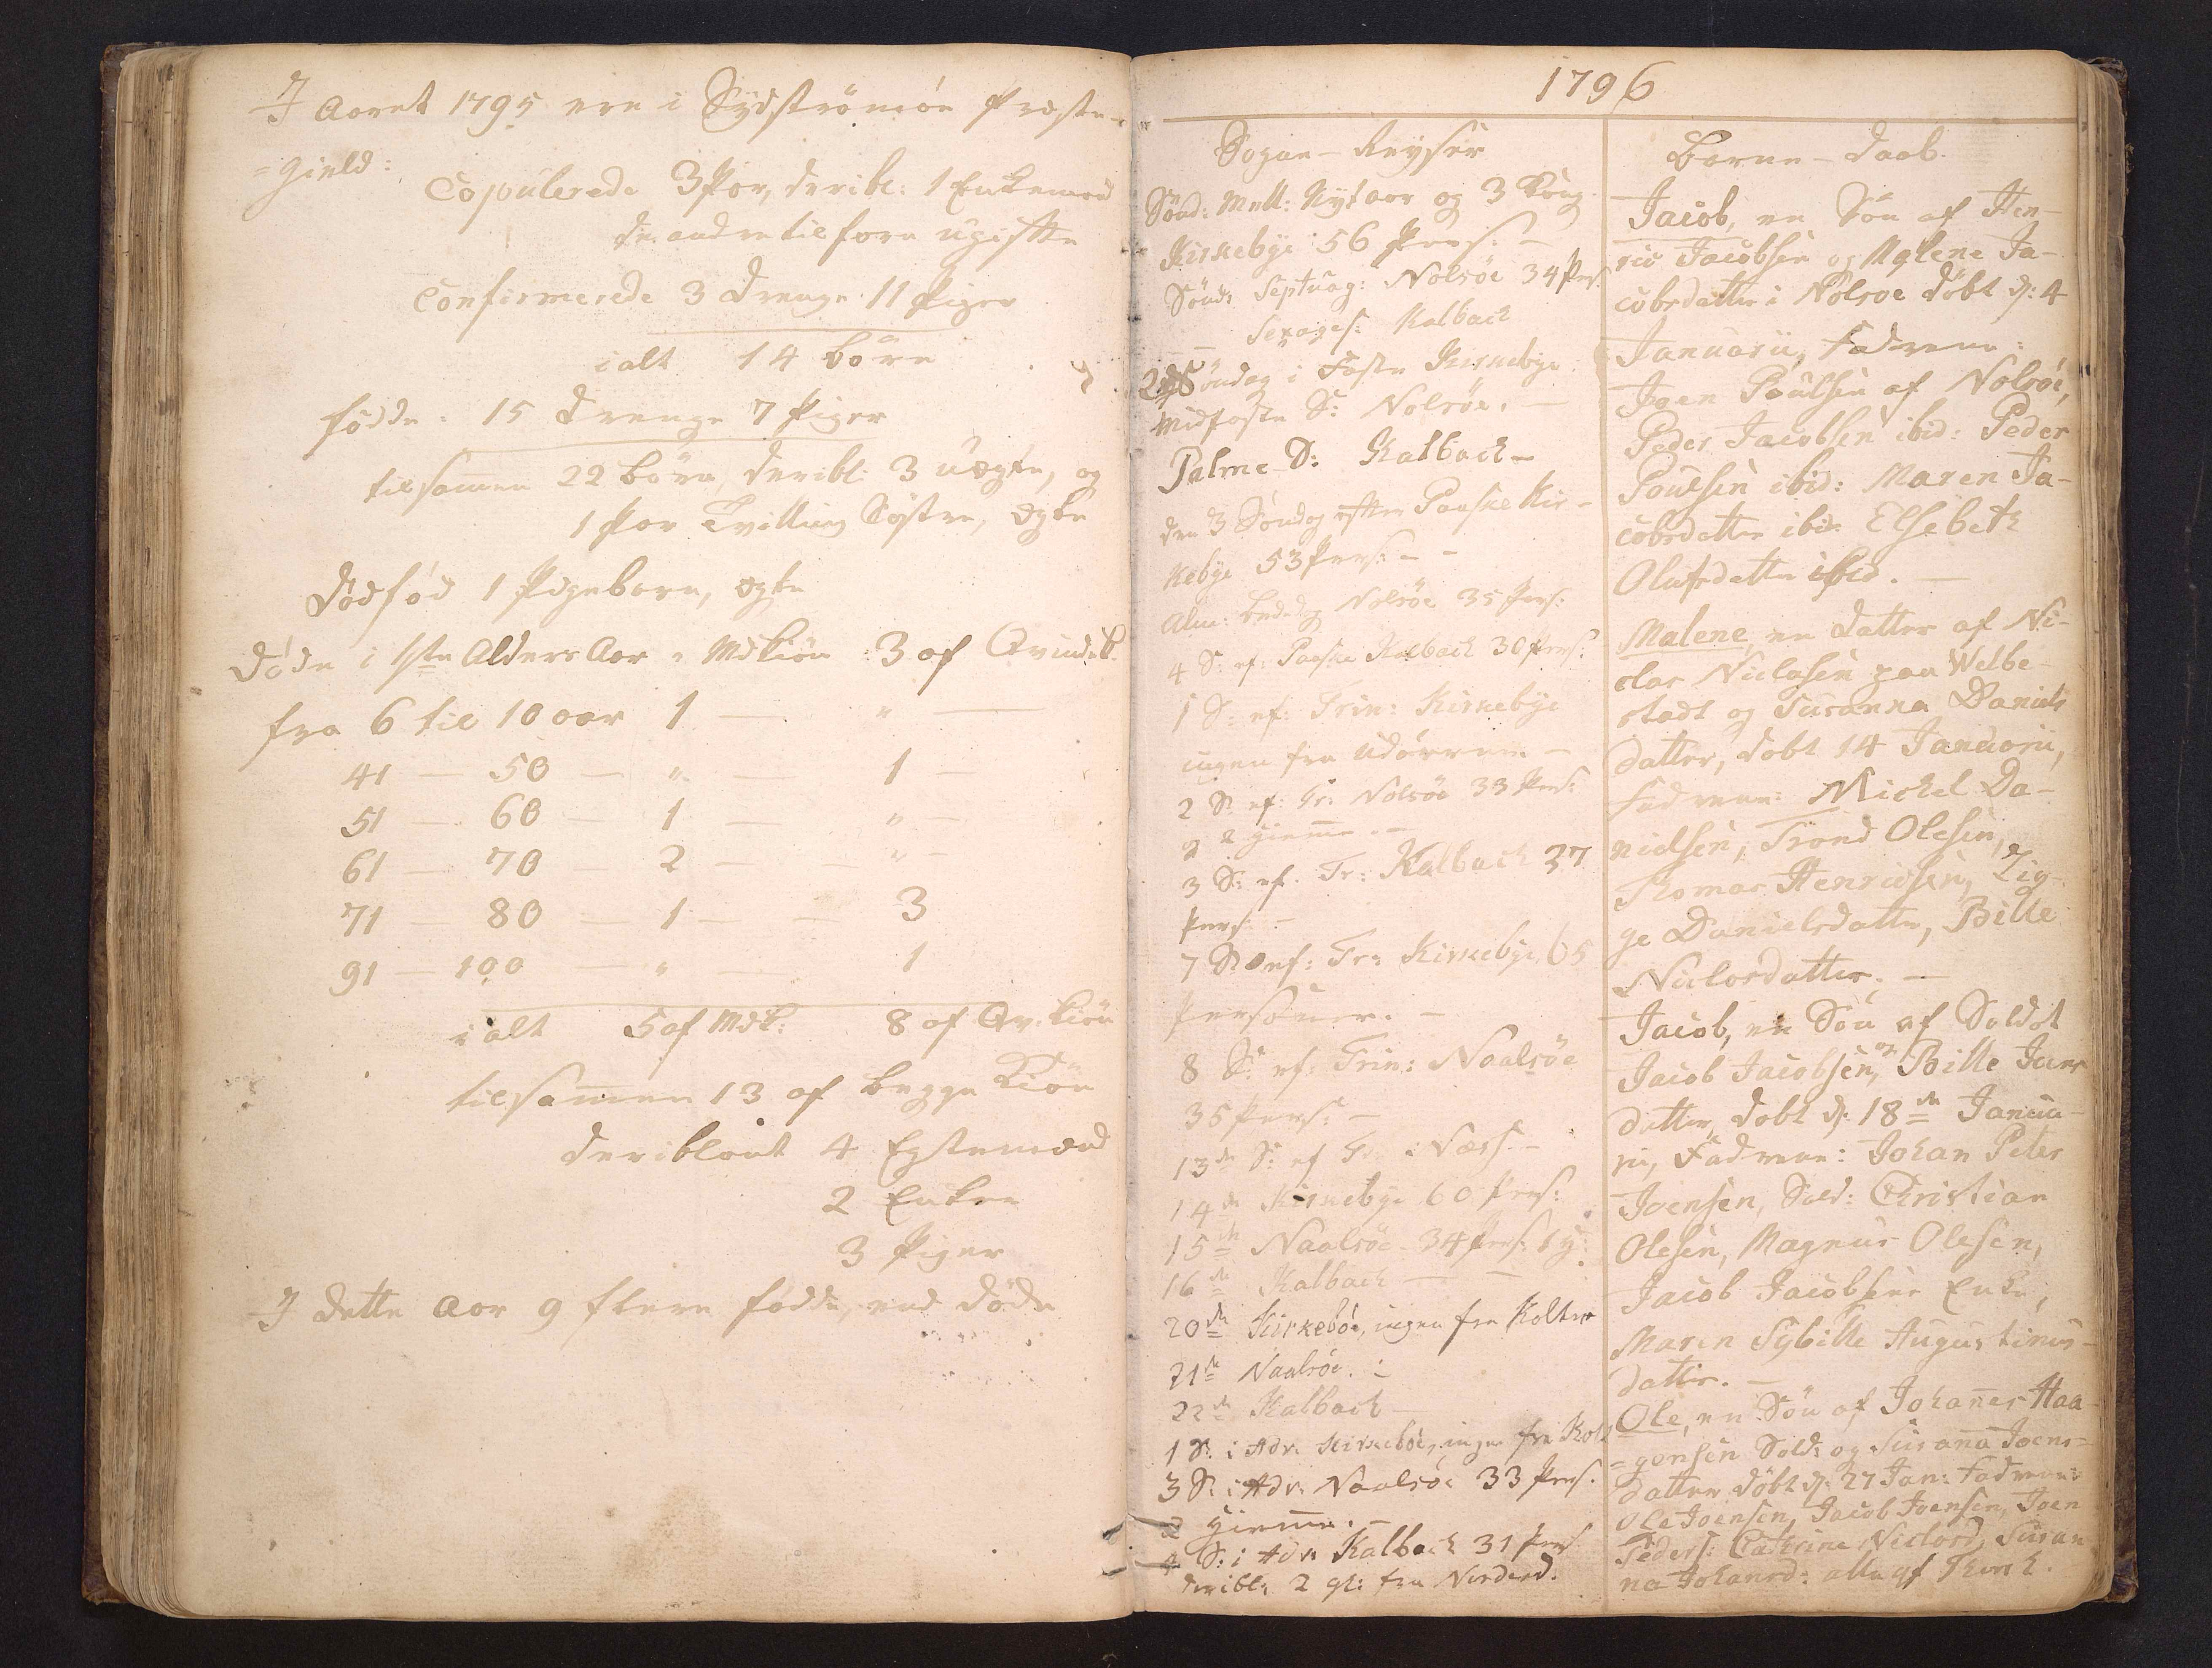 I Aaret 1795 ere i Sydströmöe Præste-
=gield:
Copulerede 3 Par, deribl: 1 Enkemand
de andre tilforn ugifte
Confirmerede 3 Drenge 11 Piger
ialt 14 börn
födde: 15 Drenge 7 Piger
tilsamen 22 börn, deribl: 3 uægte, og
1 Par Tvilling Söstre, ægte
Dödföd 1 Pigebarn, ægte
Döde i 1ste Alders Aar " Mdkiön 3 af Qvindek.
fra 6 til 10 aar 1 — " —
41 — 50 — " — 1 —
51 — 60 — 1 — " —
61 — 70 — 2 — — " —
71 — 80 — 1 — — 3
91 — 100 — " — 1
i alt 5 af Mdk: 8 af Qv. kiön
tilsammen 13 af begge Kiön
deriblant 4 Egtemænd
2 Enker
3 Piger
I dette Aar 9 flere födde, end döde
1796
Sogne-Reyser
Sönd: Mell: Nytaar og 3 Kong
Kirkebye 56 Pers: —
Sönd: Septuag: Nolsöe 34 Pers.
— Sexages: Kalbach
2 Söndag i Faste Kirkebye
Midfaste S: Nolsöe. —
Palme S: Kalbach —
den 3 Söndag efter Paaske Kir-
kebye 53 Pers: — —
Alm: Bededag Nolsöe 35 Pers:
4 S: ef: Paaske Kalbach 30 Pers:
1 S: ef: Trin: Kirkebye
ingen fra Udöerne —
2 S: ef: Tr: Nolsöe 33 Pers:
og 2 hiemme. —
3 S: ef. Tr: Kalbach 37
Pers: —
7 S: ef: Tr: Kirkebye 65
Personer. —
8 S: ef: Trin: Naalsöe
35 Pers: —
13de S: ef Tr: Næss —
14de Kirkebye 60 Pers:
15de Naalsöe 34 Pers:
16de Kalbach — —
20de Kirkeböe, ingen fra Kolter
21de Naalsöe. :
22de Kalbach —
1 S: i Adv: Kirkeböe, ingen fra Kolt
3 S: i Adv: Naalsöe 33 Pers.
2 hiemme. —
4 S: i Adv: Kalbach 31 Pers
deribl: 2 gl: fra Norderd.
Börne-Daab.
Jacob, en Sön af Hen-
ric Jacobsen og Malene Ja-
cobsdatter i Nolsoe döbt d: 4
Januarii, Fadderne:
Joen Poulsen af Nolsöe,
Peder Jacobsen ibid: Peder
Poulsen ibid: Maren Ja-
cobsdatter ibid: Elsebeth
Olufsdatter ibid. —
Malene, en Datter af Ni-
clas Niclasen paa Welbe-
stadt og Susanna Daniels
datter, döbt 14 Januarii,
Fadderne: Michel Da-
nielsen, Trond Olesen,
Thomas Henricsen, Zig-
ge Danielsdatter, Bille
Niclasdatter. —
Jacob, en Sön af Soldat
Jacob Jacobsen, og Bille Jens
datter, döbt d: 18de Janua-
rii, Fadderne: Johan Peter
Joensen, Sold: Christian
Olesen, Magnus Olesen,
Jacob Jacobsens Enke,
Maren Sybille Augustinus-
datter. —
Ole, en Sön af Johanes Haa-
=gensen Sold: og Susana Joens=
datter döbt d: 27 Jan: Fadderne:
Ole Joensen, Jacob Joensen, Joen
Peders: Cathrine Niclasd, Susan
na Johansd: alle af Thorsh.